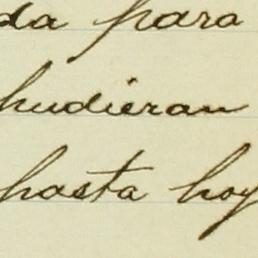 da para
hudieran
hasta hoy